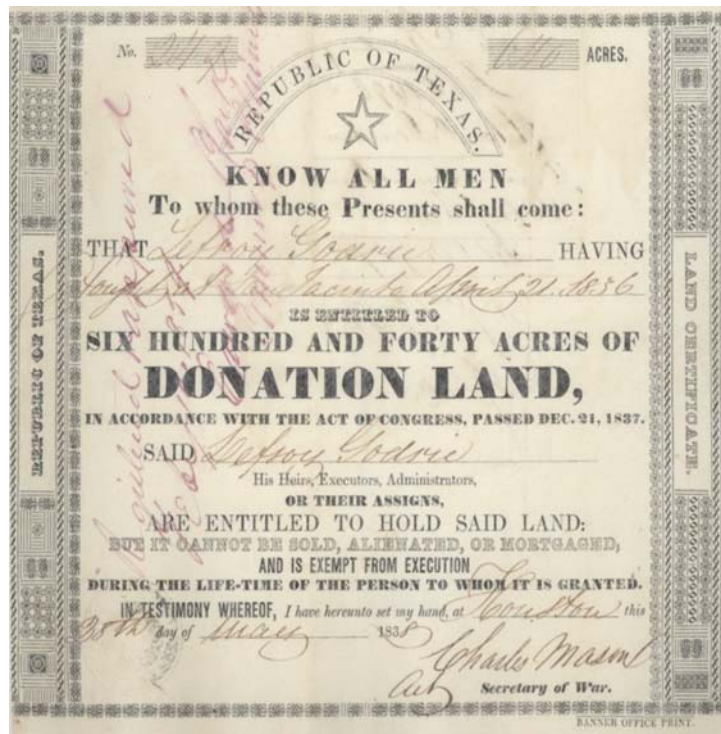 No. ACRES.
REPUBLIC OF TEXAS.
KNOW ALL MEN
To whom these Presents shall come:
THAT Lefroy Godrie HAVING
fought at San Jacinto April 21. 1836
IS ENTITLED TO
SIX HUNDRED AND FORTY ACRES OF
DONATION LAND,
IN ACCORDANCE WITH THE ACT OF CONGRESS, PASSED DEC. 21, 1837.
SAID Lefroy Godrie
His Heirs, Executors, Administrators,
OR THEIR ASSIGNS,
ARE ENTITLED TO HOLD SAID LAND:
BUT IT CANNOT BE SOLD, ALIENATED, OR MORTGAGED,
AND IS EXEMPT FROM EXECUTION
DURING THE LIFE-TIME OF THE PERSON TO WHOM IT IS GRANTED.
IN TESTIMONY WHEREOF, I have hereunto set my hand, at Houston this
30th day of May 1838
Charles Mason
Act Secretary of War.
BANNER OFFICE PRINT.
REPUBLIC OF TEXAS.
LAND CERTIFICATE.